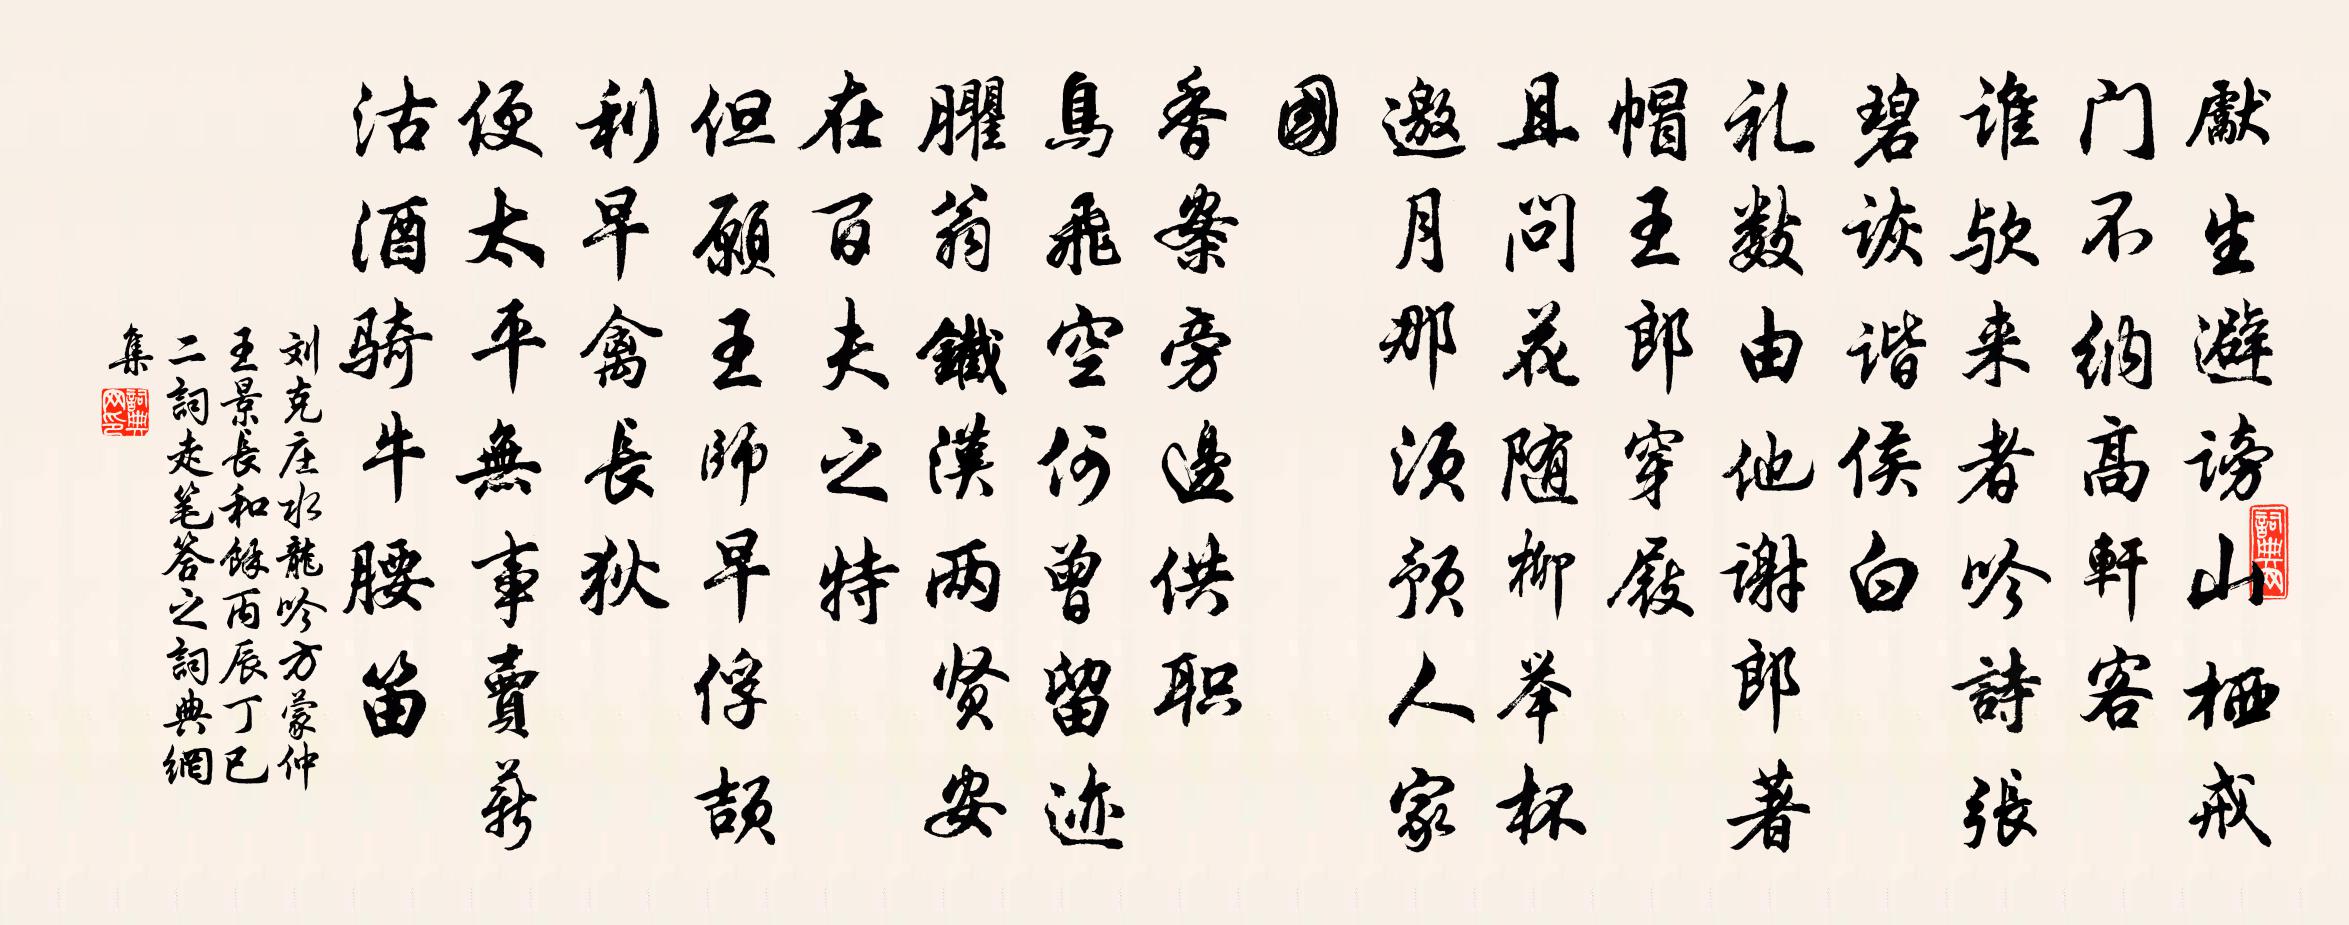 厭生避谤山栖戒
门不纳高軒客
谁欤来者吟詩張
碧诙谐侯白
礼数由他谢郎著
帽王郎穿屐
且问花随柳举杯
邀月那须预人家
國
香案旁邊供职
鳥飛空何曾留迹
臞翁鐵漢两贤安
在百夫之特
但願王師早俘頡
利早禽長狄
便太平無事賣薪
沽酒骑牛腰笛
刘克庄水龍吟方蒙仲
王景長和餘丙辰丁巳
二詞走笔答之詞典網
集
詞典网
詞典网印